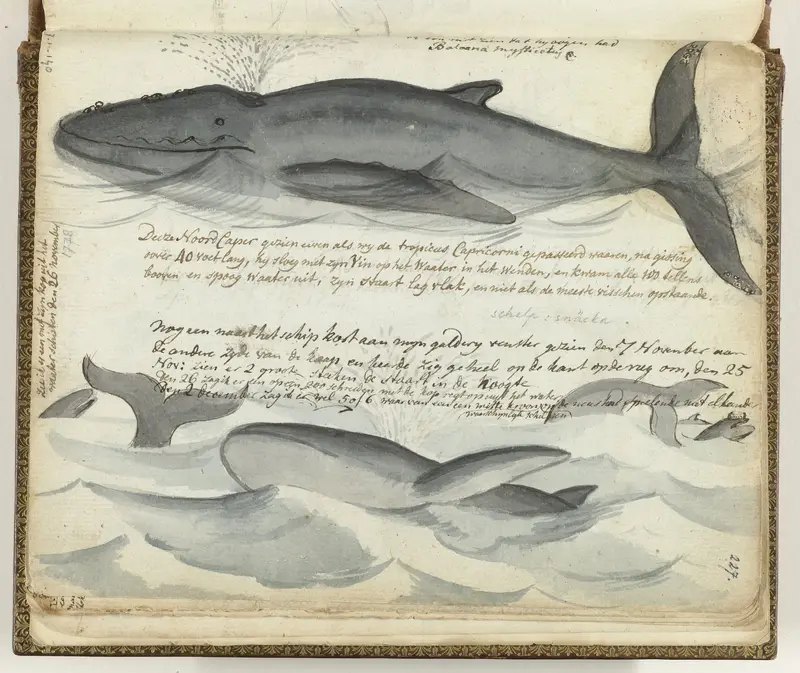 Balaena mysticetus
Deeze Noord Caper gezien even als wy de tropicus Capricorni gepasseerd waaren, na gissing
over 40 voet lang, hy sloeg met zyn Vin op het Waater in het wenden, en kwam alle 100 tellens
booven en spoog Waater uit, zyn staart lag vlak, en niet als de meeste visschen opstaande.
schelp: snäcka.
Nog een naast het schip kort aan myn galdery venster gezien den 7 November aan
de andere zyde van de kaap, en keerde zig geheel op de kant op de rug om, den 25
Nov: zien er 2 groote staken de staart in de hoogte
Den 26 zag ik er een op een 200 schreeden met de kop regt op uyt het water
Den 2 december zag ik er wel 5 of 6 waar van een een witte kroon op de neus had speelende met elkander
den 26 november
1778
227